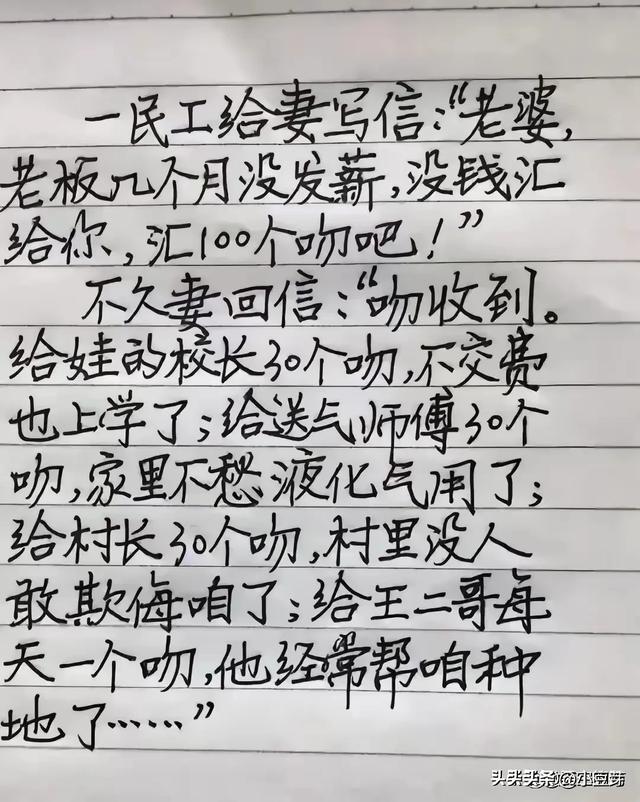 一民工给妻写信:“老婆,
老板几个月没发薪,没钱汇
给你,汇100个吻吧!”
不久妻回信:“吻收到。
给娃的校长30个吻,不交费
也上学了;给送气师傅30个
吻,家里不愁液化气用了;
给村长30个吻,村里没人
敢欺侮咱了;给王二哥每
天一个吻,他经常帮咱种
地了……”
头条